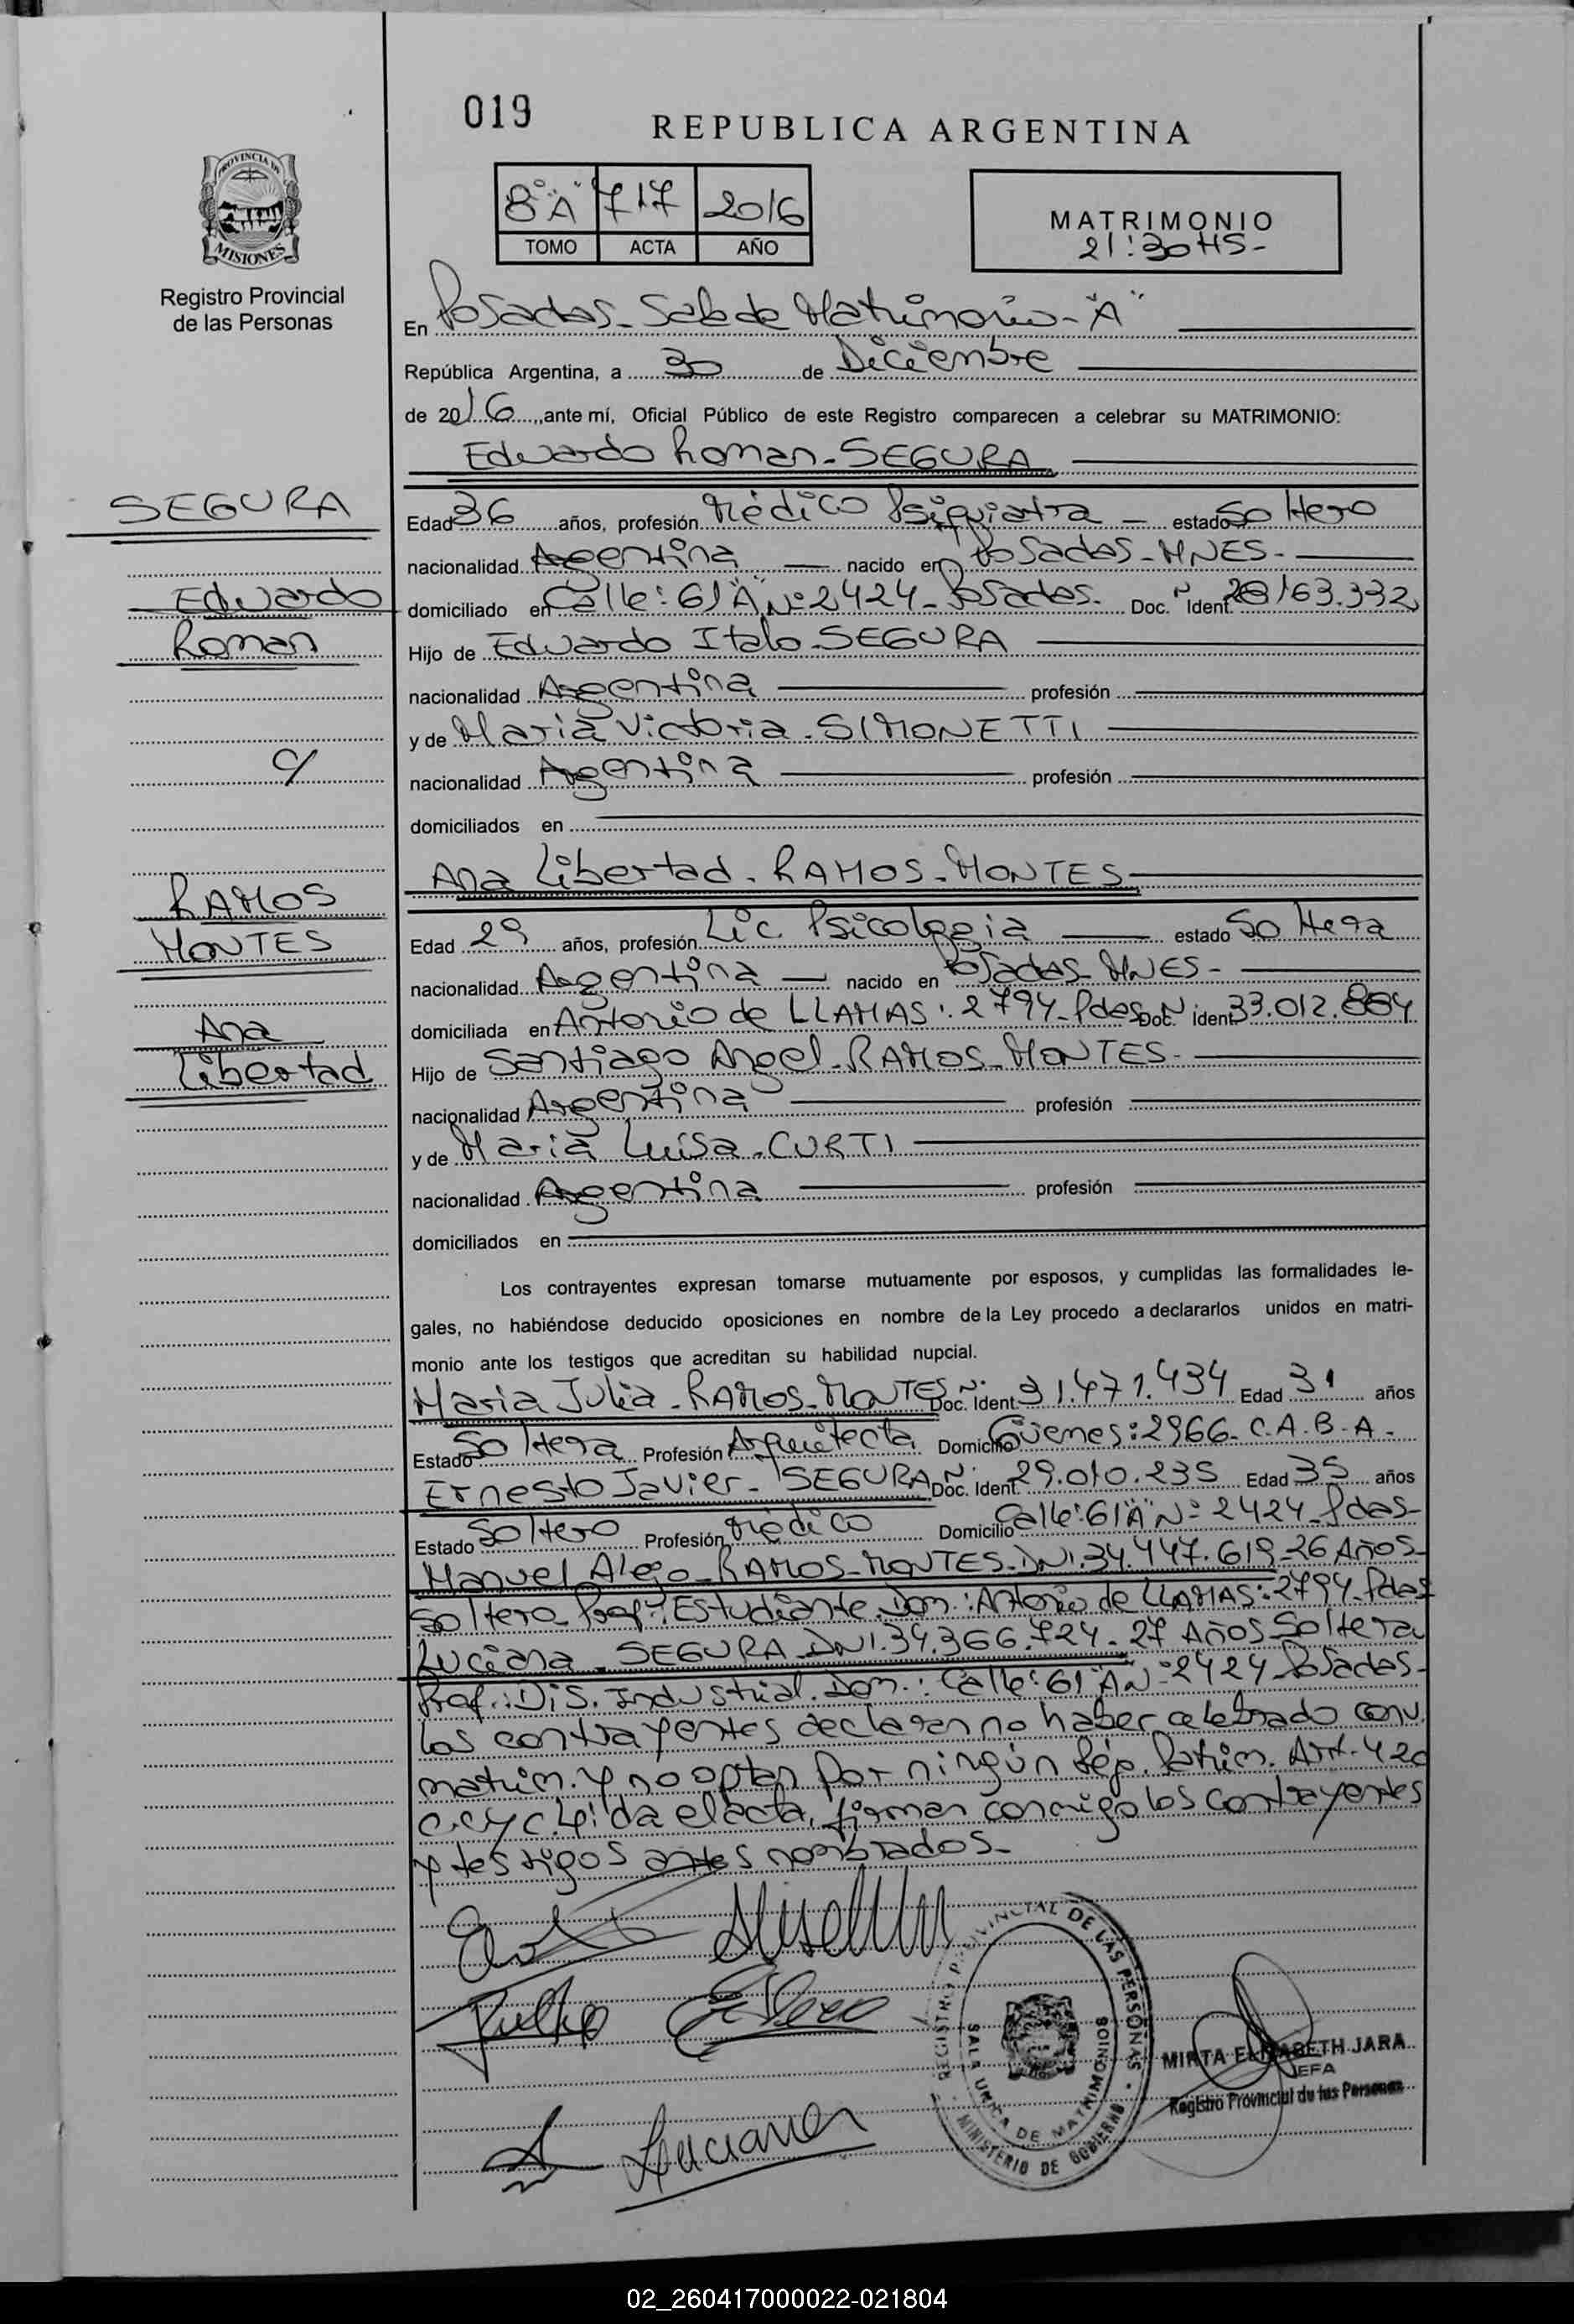 019
REPUBLICA ARGENTINA
8º "A" 717 2016
TOMO ACTA AÑO
MATRIMONIO
21:30 HS-
PROVINCIA DE
MISIONES
Registro Provincial
de las Personas
En Posadas - Sala de Matrimonio - "A"
República Argentina, a 30 de Diciembre
de 2016, ante mí, Oficial Público de este Registro comparecen a celebrar su MATRIMONIO:
Eduardo Roman - SEGURA
SEGURA
Eduardo
Roman
c/
RAMOS
MONTES
Ana
Libertad
Edad 36 años, profesión Médico Psiquiatra - estado Soltero
nacionalidad Argentina nacido en Posadas - MNES -
domiciliado en Calle: 61 "A" Nº 2424 - Posadas. Doc. Nº Ident. 28163.332
Hijo de Eduardo Italo - SEGURA
nacionalidad Argentina profesión
y de Maria Victoria - SIMONETTI
nacionalidad Argentina profesión
domiciliados en
Ana Libertad - RAMOS - MONTES
Edad 29 años, profesión Lic. Psicologia estado Soltera
nacionalidad Argentina - nacido en Posadas - MNES -
domiciliada en Antonio de LLAMAS: 2794 - Pdas Doc. Nº ident 33.012.884
Hijo de Santiago Angel - RAMOS - MONTES -
nacionalidad Argentina profesión
y de Maria Luisa - CURTI
nacionalidad Argentina profesión
domiciliados en
Los contrayentes expresan tomarse mutuamente por esposos, y cumplidas las formalidades le-
gales, no habiéndose deducido oposiciones en nombre de la Ley procedo a declararlos unidos en matri-
monio ante los testigos que acreditan su habilidad nupcial.
Maria Julia - RAMOS - MONTES Doc. Ident. Nº 31.471.434 Edad 31 años
Estado Soltera Profesión Arquitecta Domicilio Güemes: 2966 - C.A.B.A -
Ernesto Javier - SEGURA Doc. Ident. Nº 29.010.235 Edad 35 años
Estado Soltero Profesión Médico Domicilio Calle: 61 "A" Nº 2424 - Pdas-
Manuel Alejo - RAMOS - MONTES - DNI. 34.447.619 - 26 Años-
Soltero - Prof: Estudiante. Dom.: Antonio de LLAMAS: 2794 - Pdas
Luciana - SEGURA - DNI. 34.366.724 - 27 Años Soltera
Prof.: Dis. Industrial. Dom.: Calle: 61 "A" Nº 2424 - Posadas -
Los contrayentes declaran no haber celebrado conv.
matrim. y no optan por ningún Rég. Patrim. Art. 420
c.c y c. Leida el acta, firman conmigo los contrayentes
y testigos antes nombrados-
Luciana
REGISTRO PROVINCIAL DE LAS PERSONAS
SALA UNICA DE MATRIMONIOS
MINISTERIO DE GOBIERNO
MIRTA ELIZABETH JARA
JEFA
Registro Provincial de las Personas
02_260417000022-021804